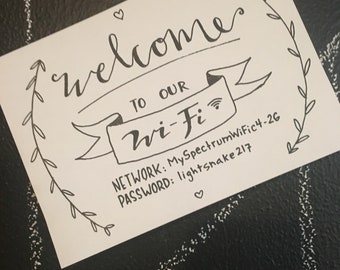 welcome
TO OUR
Wi-Fi
NETWORK: MySpectrumWiFic4-2G
PASSWORD: lightsnake217